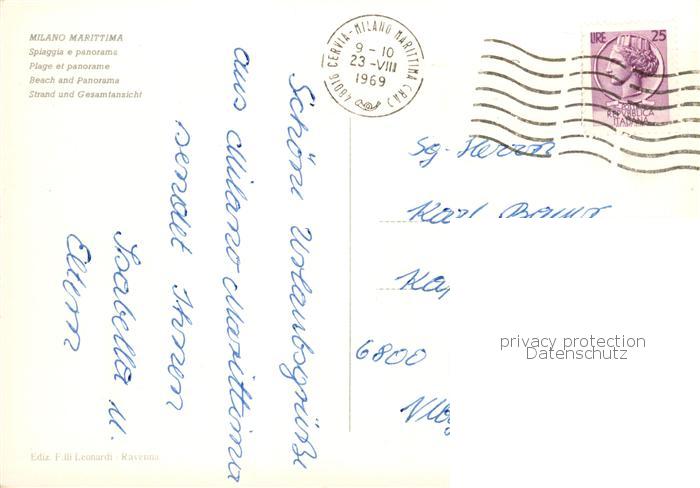 MILANO MARITTIMA
Spiaggia e panorama
Plage et panorame
Beach and Panorama
Strand und Gesamtansicht
48016 CERVIA-MILANO MARITTIMA (RA)
9-10
23-VIII
1969
LIRE 25
REPVBBLICA
ITALIANA
Schöne Urlaubsgrüße
aus Milano Marittima
sendet Ihnen
Isabella u.
Eltern
Sg. Herrn
Karl
6800
privacy protection
Datenschutz
Ediz. F.lli Leonardi - Ravenna